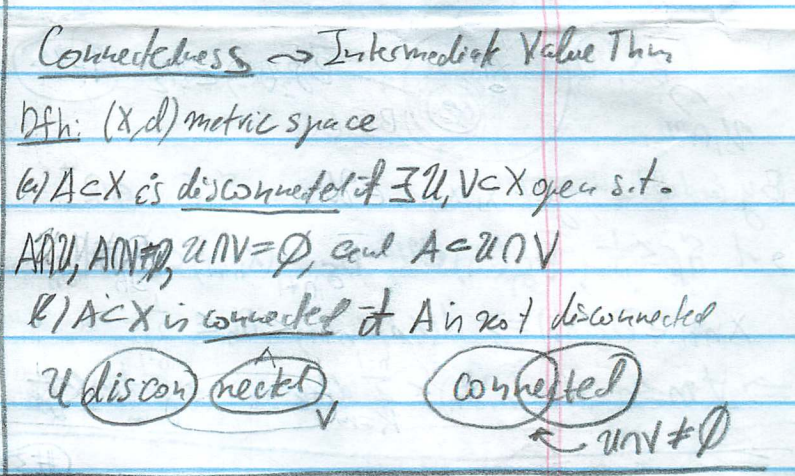 Connectedness ⤳ Intermediate Value Thm
Dfn: (X,d) metric space
(a) A⊂X is disconnected if ∃ U, V⊂X open s.t.
A∩U, A∩V≠∅, U∩V=∅, and A⊂U∩V
(b) A⊂X is connected if A is not disconnected
U disconnected connected
A
V
U∩V≠∅